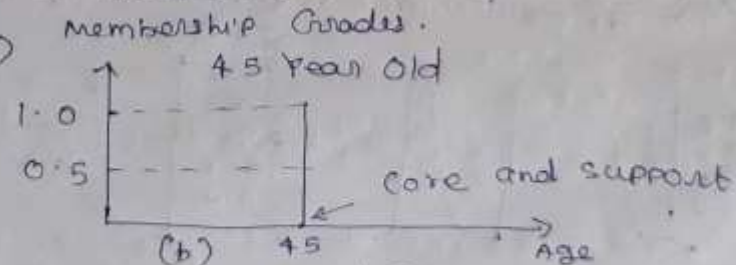 Membership Grades.
45 Year Old
1.0
0.5
core and support
(b) 45 Age